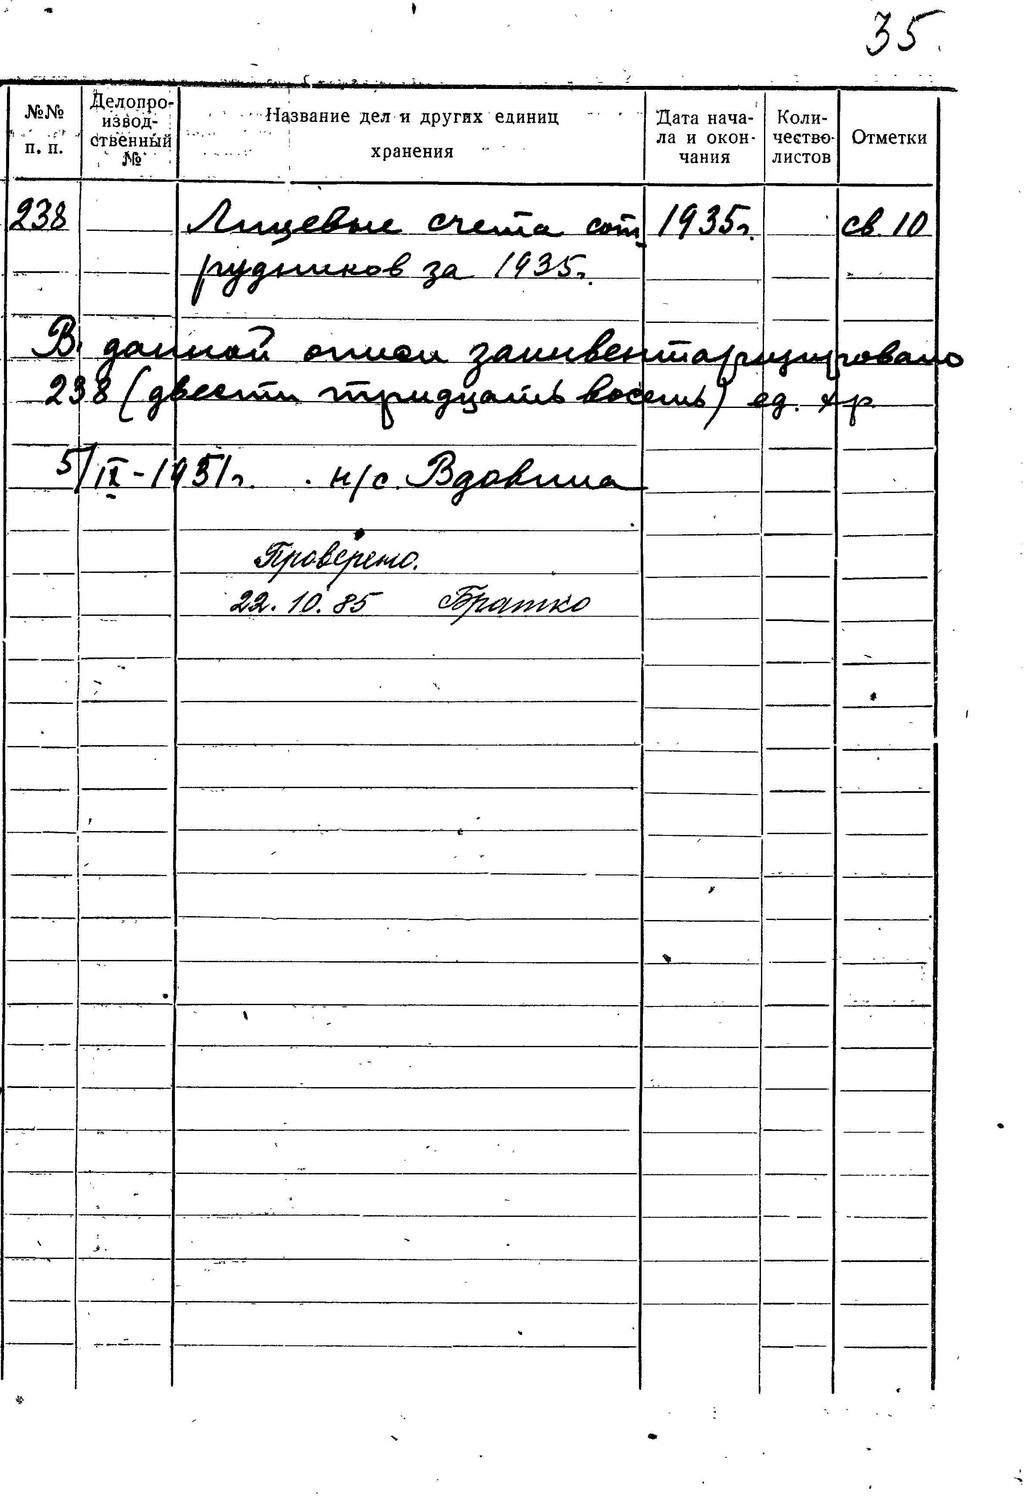 35.
№№ п. п.
Делопро-
извод-
ственный
№
Название дел и других единиц
хранения
Дата нача-
ла и окон-
чания
Коли-
чество
листов
Отметки
238 Лицевые счета сот 1935г. св. 10
рудников за 1935г.
В данной описи заинвентаризировано
238 (двести тридцать восемь) ед. хр.
5/IX-1951г. н/с. Вдовина
Проверено.
22.10.85 Братко